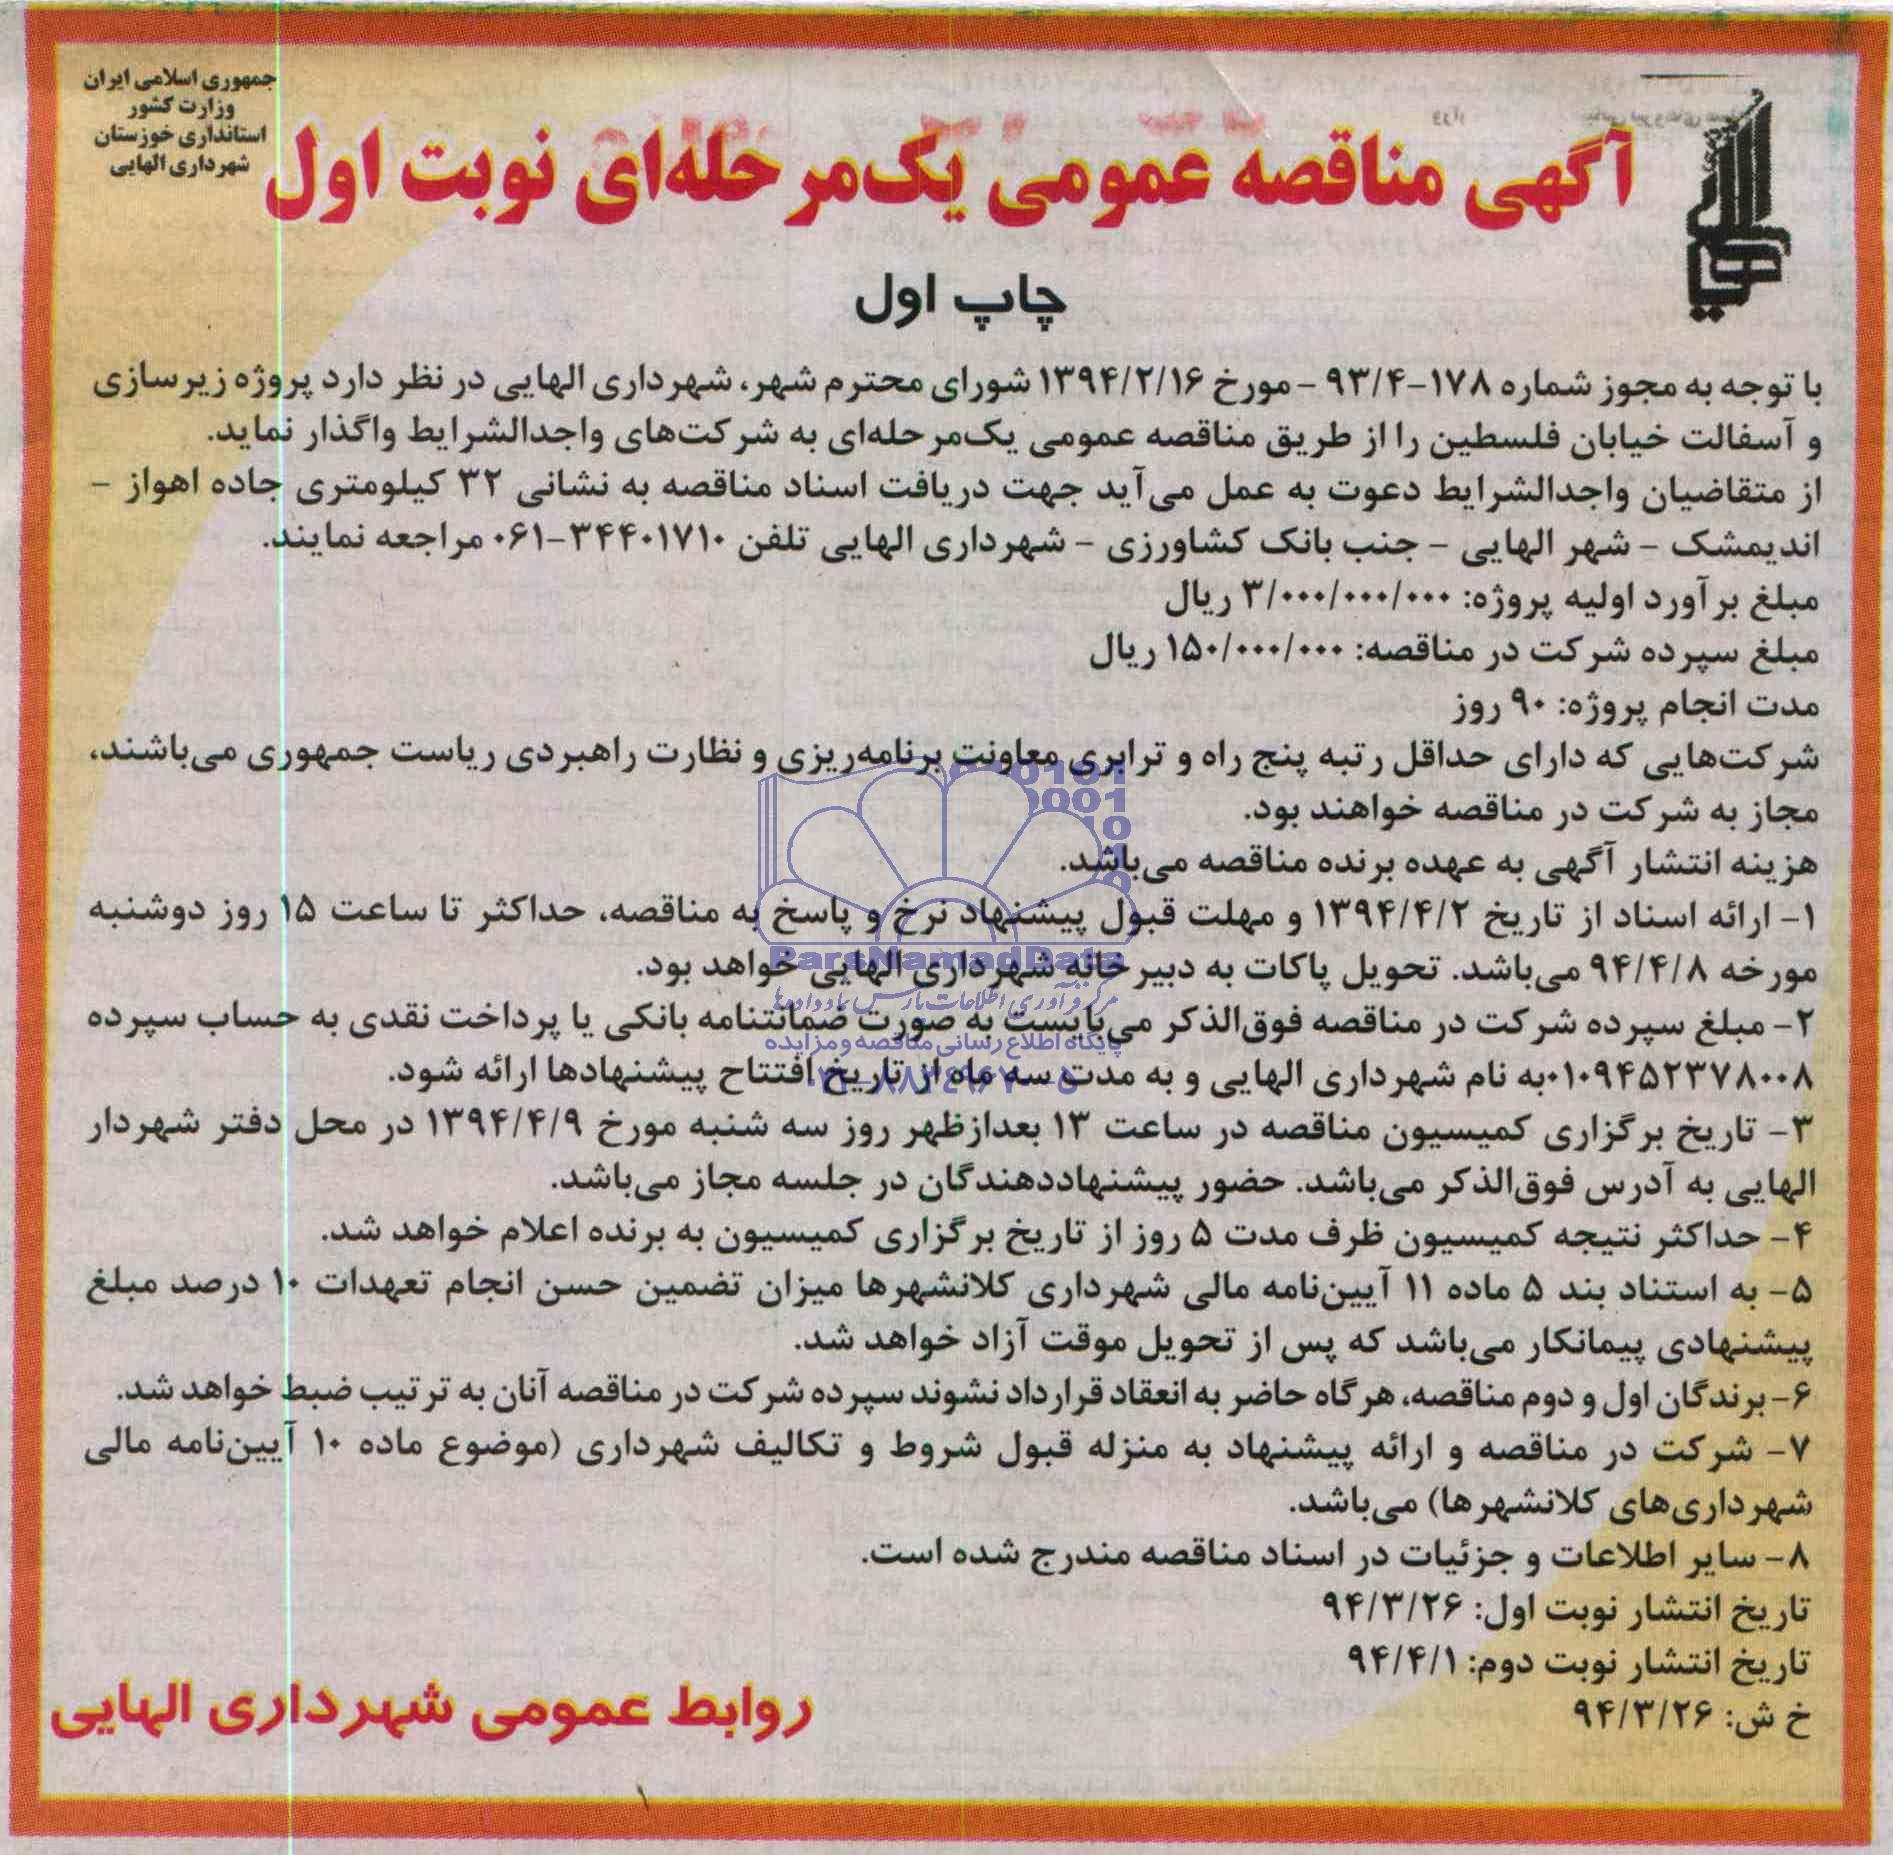 جمهوری اسلامی ایران
وزارت کشور
استانداری خوزستان
شهرداری الهایی
آگهی مناقصه عمومی یک‌مرحله‌ای نوبت اول
چاپ اول
با توجه به مجوز شماره ۱۷۸-۹۳/۴ - مورخ ۱۳۹۴/۲/۱۶ شورای محترم شهر، شهرداری الهایی در نظر دارد پروژه زیرسازی
و آسفالت خیابان فلسطین را از طریق مناقصه عمومی یک‌مرحله‌ای به شرکت‌های واجدالشرایط واگذار نماید.
از متقاضیان واجدالشرایط دعوت به عمل می‌آید جهت دریافت اسناد مناقصه به نشانی ۳۲ کیلومتری جاده اهواز -
اندیمشک - شهر الهایی - جنب بانک کشاورزی - شهرداری الهایی تلفن ۳۴۴۰۱۷۱۰-۰۶۱ مراجعه نمایند.
مبلغ برآورد اولیه پروژه: ۳/۰۰۰/۰۰۰/۰۰۰ ریال
مبلغ سپرده شرکت در مناقصه: ۱۵۰/۰۰۰/۰۰۰ ریال
مدت انجام پروژه: ۹۰ روز
شرکت‌هایی که دارای حداقل رتبه پنج راه و ترابری معاونت برنامه‌ریزی و نظارت راهبردی ریاست جمهوری می‌باشند،
مجاز به شرکت در مناقصه خواهند بود.
هزینه انتشار آگهی به عهده برنده مناقصه می‌باشد.
۱- ارائه اسناد از تاریخ ۱۳۹۴/۴/۲ و مهلت قبول پیشنهاد نرخ و پاسخ به مناقصه، حداکثر تا ساعت ۱۵ روز دوشنبه
مورخه ۹۴/۴/۸ می‌باشد. تحویل پاکات به دبیرخانه شهرداری الهایی خواهد بود.
ParsNamadData
مرکز فرآوری اطلاعات پارس نماد داده‌ها
۲- مبلغ سپرده شرکت در مناقصه فوق‌الذکر می‌بایست به صورت ضمانتنامه بانکی یا پرداخت نقدی به حساب سپرده
پایگاه اطلاع رسانی مناقصه و مزایده
۰۱۰۹۴۵۲۳۷۸۰۰۸ به نام شهرداری الهایی و به مدت سه ماه از تاریخ افتتاح پیشنهادها ارائه شود.
۳- تاریخ برگزاری کمیسیون مناقصه در ساعت ۱۳ بعدازظهر روز سه شنبه مورخ ۱۳۹۴/۴/۹ در محل دفتر شهردار
الهایی به آدرس فوق‌الذکر می‌باشد. حضور پیشنهاددهندگان در جلسه مجاز می‌باشد.
۴- حداکثر نتیجه کمیسیون ظرف مدت ۵ روز از تاریخ برگزاری کمیسیون به برنده اعلام خواهد شد.
۵- به استناد بند ۵ ماده ۱۱ آیین‌نامه مالی شهرداری کلانشهرها میزان تضمین حسن انجام تعهدات ۱۰ درصد مبلغ
پیشنهادی پیمانکار می‌باشد که پس از تحویل موقت آزاد خواهد شد.
۶- برندگان اول و دوم مناقصه، هرگاه حاضر به انعقاد قرارداد نشوند سپرده شرکت در مناقصه آنان به ترتیب ضبط خواهد شد.
۷- شرکت در مناقصه و ارائه پیشنهاد به منزله قبول شروط و تکالیف شهرداری (موضوع ماده ۱۰ آیین‌نامه مالی
شهرداری‌های کلانشهرها) می‌باشد.
۸- سایر اطلاعات و جزئیات در اسناد مناقصه مندرج شده است.
تاریخ انتشار نوبت اول: ۹۴/۳/۲۶
تاریخ انتشار نوبت دوم: ۹۴/۴/۱
خ ش: ۹۴/۳/۲۶
روابط عمومی شهرداری الهایی